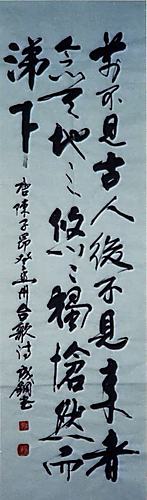 前不見古人後不見来者
念天地之悠悠獨愴然而
涕下
唐陳子昂登幽州台歌詩